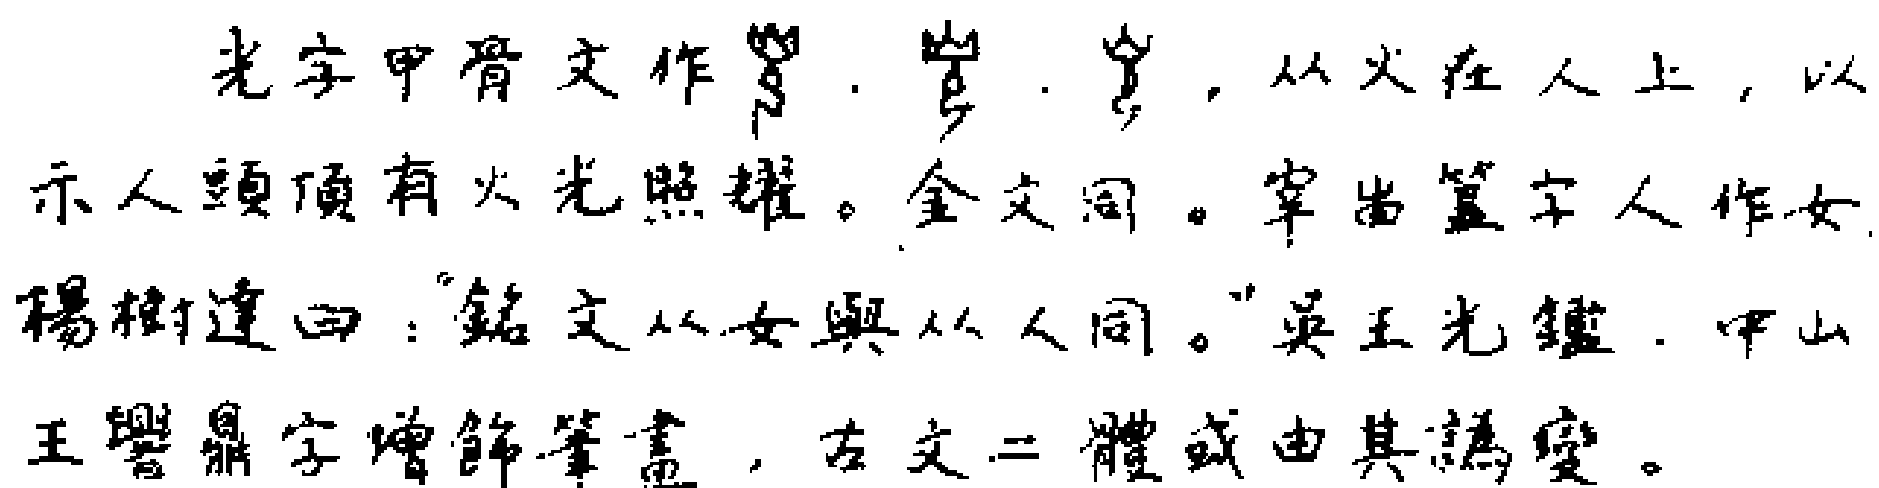 光字甲骨文作．．，从火在人上，以
示人頭頂有火光照耀。金文同。宰甾簋字人作女.
楊樹達曰："銘文从女與从人同。"吳王光鑑．中山
王譽鼎字增飾筆畫，古文二體或由其譌變。